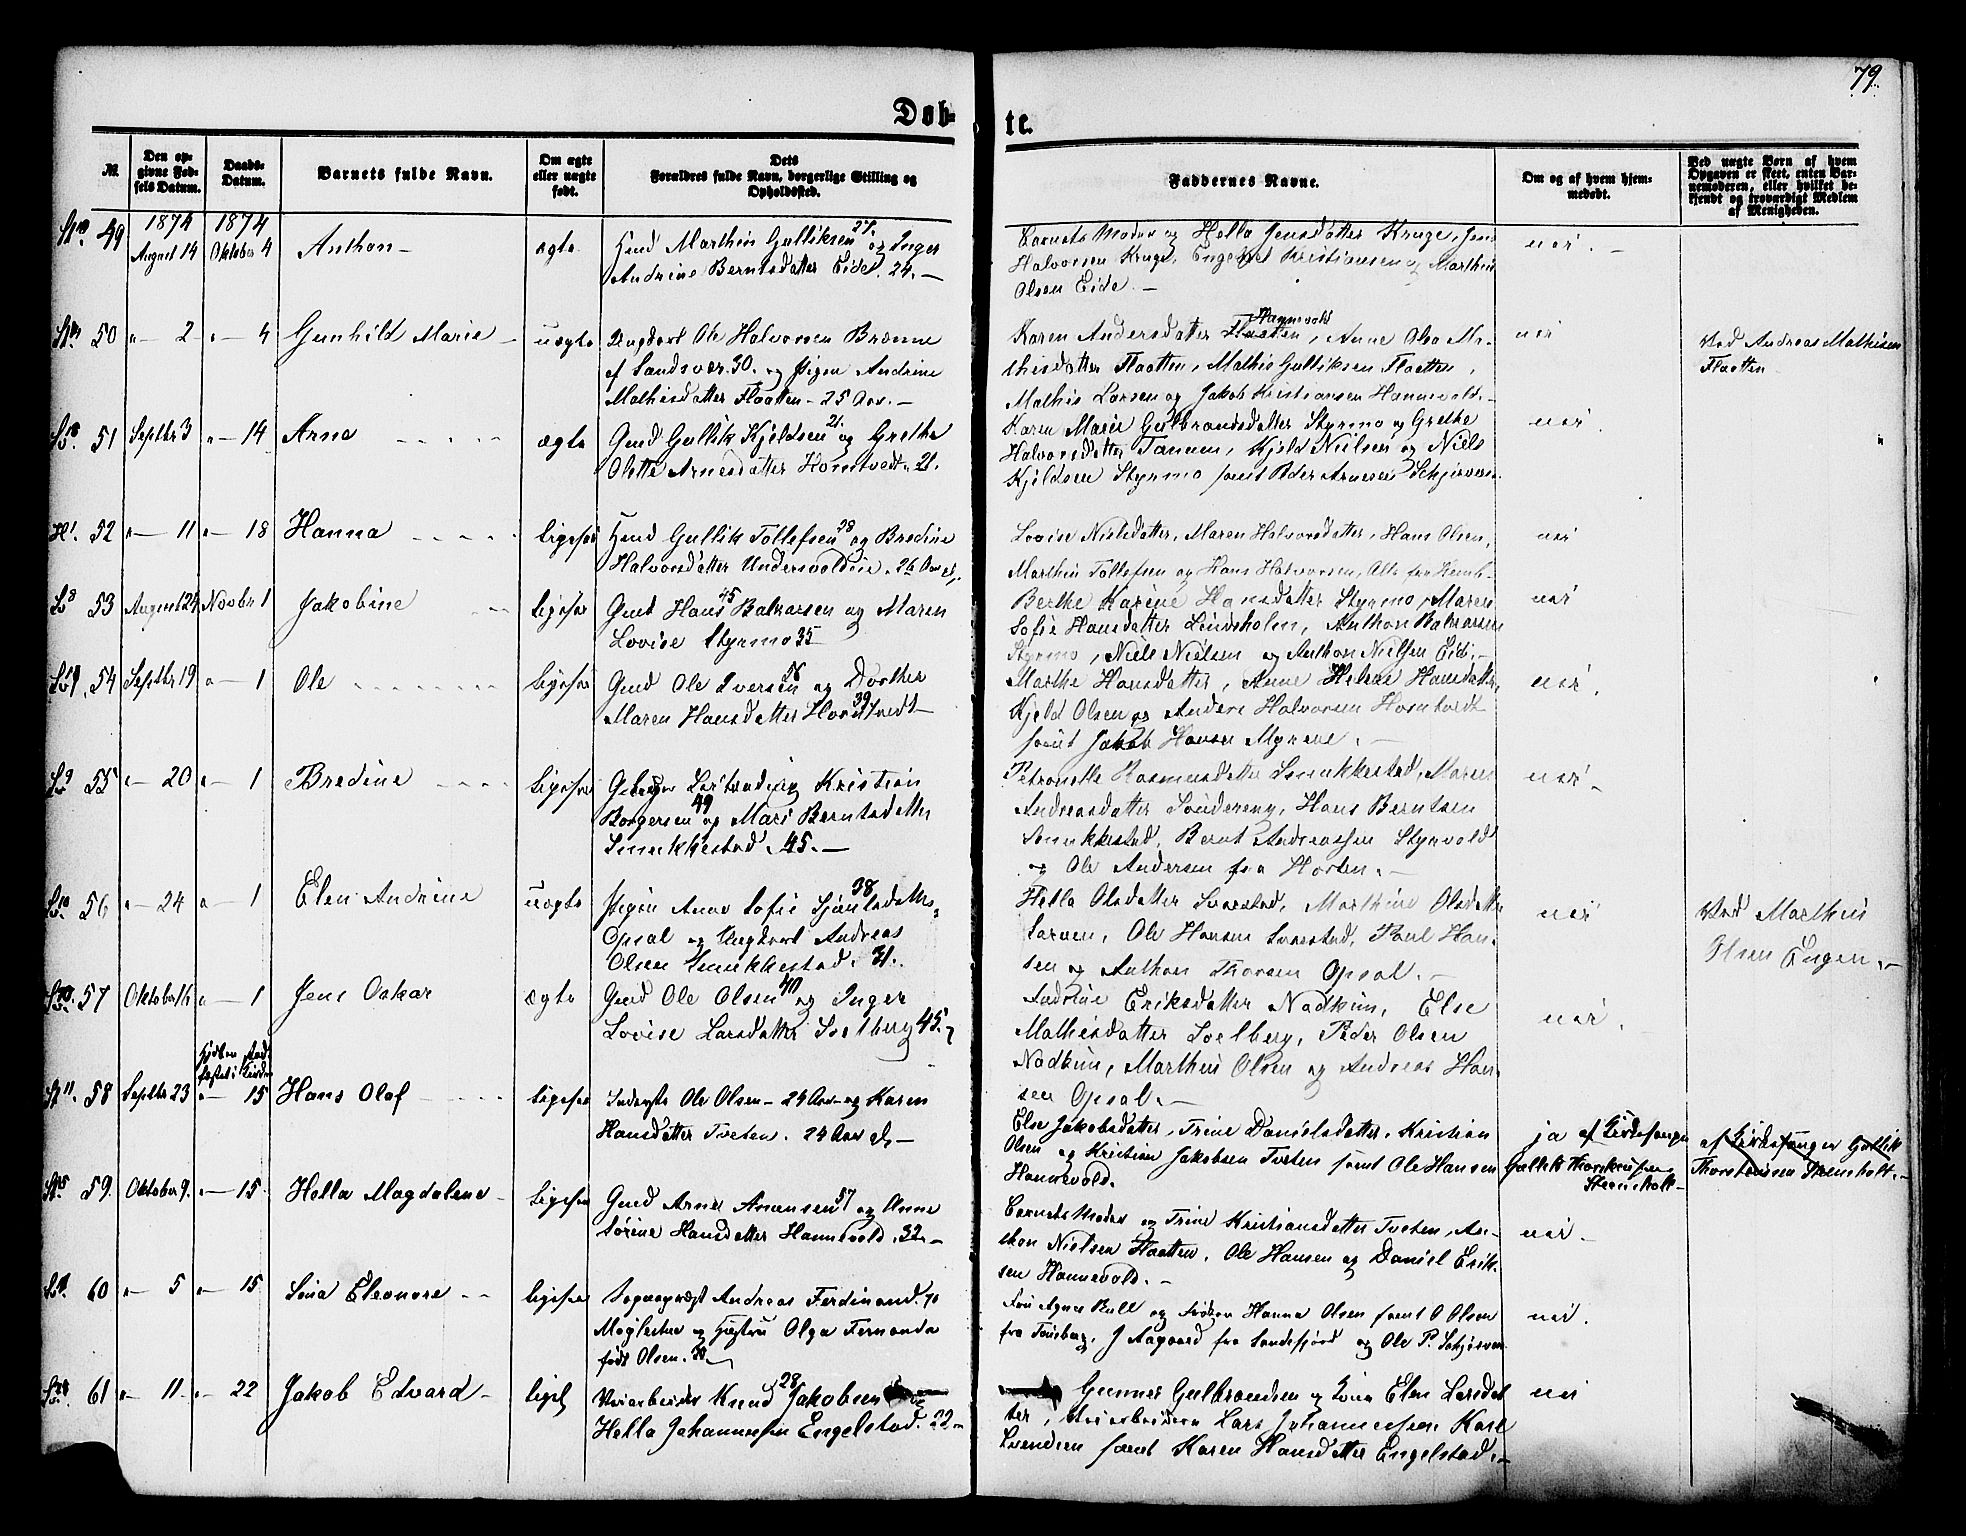 79
Døb- te.
№
Den op-
givne Fød-
sels Datum.
Daabs-
Datum.
Barnets fulde Navn.
Om ægte
eller uægte
født.
Dets
Forældres fulde Navn, borgerlige Stilling og
Opholdssted.
Faddernes Navne.
Om og af hvem hjem-
medøbt.
Ved uægte Børn af hvem
Opgaven er skeet, enten Bar-
nemoderen, eller hvilket be-
kjendt og troværdigt Medlem
af Menigheden.
1874 1874
49 August 14 Oktober 4 Anthon ægte
Gmd Marthin Gulliksen 27. og Inger
Andrine Berntsdatter Eide. 24.
Barnets Moder og Hella Jensdatter Kruge, Jens
Halvorsen Kruge, Engebret Kristiansen og Marthin
Olsen Eide.
nei.
50 " 2 " 4 Gunhild Marie uægte
Ungkarl Ole Halvorsen Bræme
af Sandsvær. 30. og Pigen Andrine
Mathisdatter Flaatten 25 Aar.
Hannevold
Karen Andersdatter Flaatten, Anne Olea Ma-
thisdatter Flaatten, Mathis Gulliksen Flaatten,
Mathis Larsen og Jakob Kristiansen Hannevold.
nei
Ved Andreas Mathisen
Flaatten
51 Septbr 3 " 14 Arne ægte
Gmd Gullik Kjeldsen 21. og Grethe
Olette Arnesdatter Homtvedt. 21.
Karen Marie Gulbrandsdatter Styrmo og Grethe
Halvorsdatter Tanum, Kjeld Nielsen og Niels
Kjeldsen Styrmo samt Peder Arnesen Schjerven
nei.
52 " 11 " 18 Hanna ligesaa
Gmd Gullik Tollefsen 28 og Bredine
Halvorsdatter Undersvoldeie. 26 Aar
Lovise Nielsdatter, Maren Halvorsdatter, Hans Olsen,
Marthin Tollefsen og Hans Halvorsen, Alle fra
nei
53 August 24 Novbr 1 Jakobine ligesaa
Gmd Hans 45 Balzarsen og Maren
Lovise Styrmo 35
Berthe Karine Hansdatter Styrmo, Maren
Sofie Hansdatter Lindsholm, Anthon Balzarsen
Styrmo, Niels Nielsen og Anthon Nielsen Eide.
nei
54 Septbr 19 " 1 Ole ligesaa
Gmd Ole Iversen 56 og Dorthe
Maren Hansdatter 39 Homtvedt
Marthe Hansdatter, Anne Helene Hansdatter,
Kjeld Olsen og Anders Halvorsen Homtvedt
samt Jakob Hansen Myrene.
nei.
55 " 20 " 1 Bredine ligesaa
Kristian
Borgersen 49 og Mari Berntsdatter
Smukkestad. 45.
Petronelle Rasmusdatter Smukkestad, Maren
Andreasdatter Søndereng, Hans Berntsen
Smukkestad, Bernt Andreassen Styrvold
og Ole Andersen fra Horten.
nei
56 " 24 " 1 Elen Andrine uægte
Pigen Anne Sofie 38
Opsal og Ungkarl Andreas
Olsen Smukkestad. 31.
Hella Olsdatter Svarstad, Marthine Olsdatter
Sarven, Ole Hansen Svarstad, Poul Han-
sen og Anthon Thorsen Opsal.
nei
Ved Marthin
Olsen Engen.
57 Oktober 16 " 1 Jens Oskar ægte
Gmd Ole Olsen 40 og Inger
Lovise Larsdatter Solberg 45.
Andrine Eriksdatter Nadkim, Else
Mathisdatter Solberg, Peder Olsen
Nadkim, Marthin Olsen og Andreas Han-
sen Opsal.
nei.
58 Septbr 23 " 15 Hans Olaf ligesaa
Inderste Ole Olsen 24 Aar og Karen
Hansdatter Tveten. 24 Aar
Else Jakobsdatter, Trine Danielsdatter, Kristian
Olsen og Kristian Jakobsen Tveten samt Ole Hansen
Hannevold.
ja af Kirkesanger
Gullik Thorstensen
Steinsholt
af Kirkesanger Gullik
Thorstensen Steinsholt.
59. Oktober 9. " 15. Hella Magdalene ligesaa
Gmd Arne Amansen 57 og Anne
Lørine Hansdatter Hannevold. 32.
Barnets Moder og Trine Kristiansdatter Tveten, An-
thon Nielsen Flaatten, Ole Hansen og Daniel Erik-
sen Hannevold.
nei.
60 " 5 " 15 Sina Eleonore ligesaa
Sogneprest Andreas Ferdinand 40
Møglestue og Hustru Olga Fernanda
født Olsen.
Fru Agnes Bull og Frøken Hanna Olsen samt O Olsen
fra Tønsberg, J Aagaard fra Sandefjord og Ole P. Schjerven
nei.
61 " 11 " 22 Jakob Edvard
Veiarbeider Knud 28 Jakobsen og
Hella Johannesen Engelstad. 22
Gunner Gulbrandsen og Kone Elen Larsdat-
ter, Veiarbeidere Lars Johannesen Karl
Svendsen samt Karen Hansdatter Engelstad.
nei